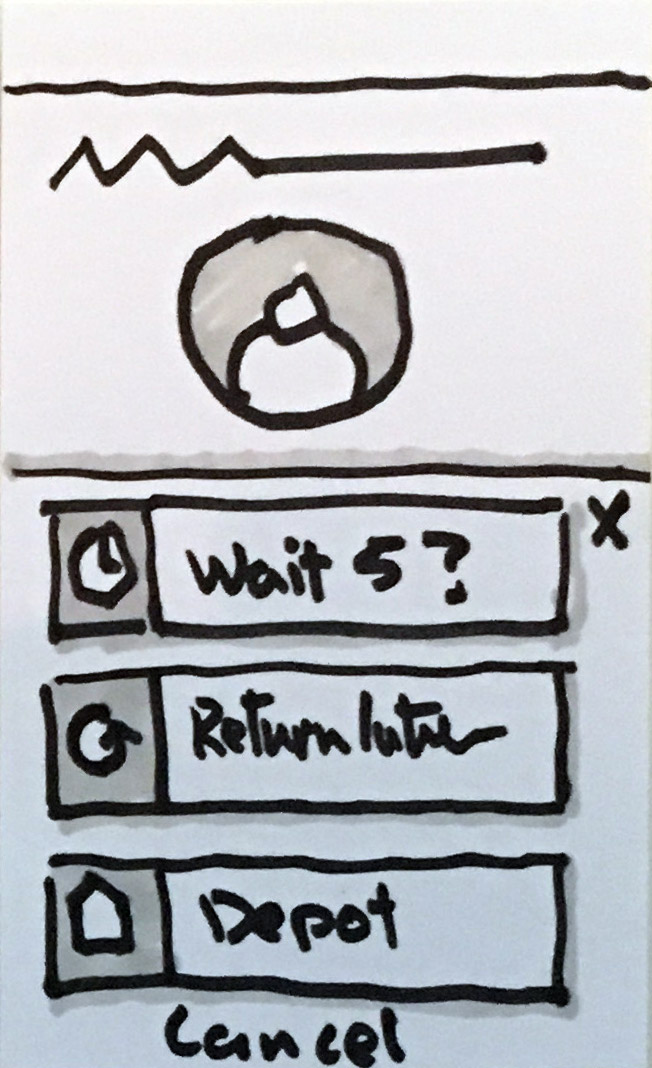 X
Wait 5?
Return later
Depot
Cancel